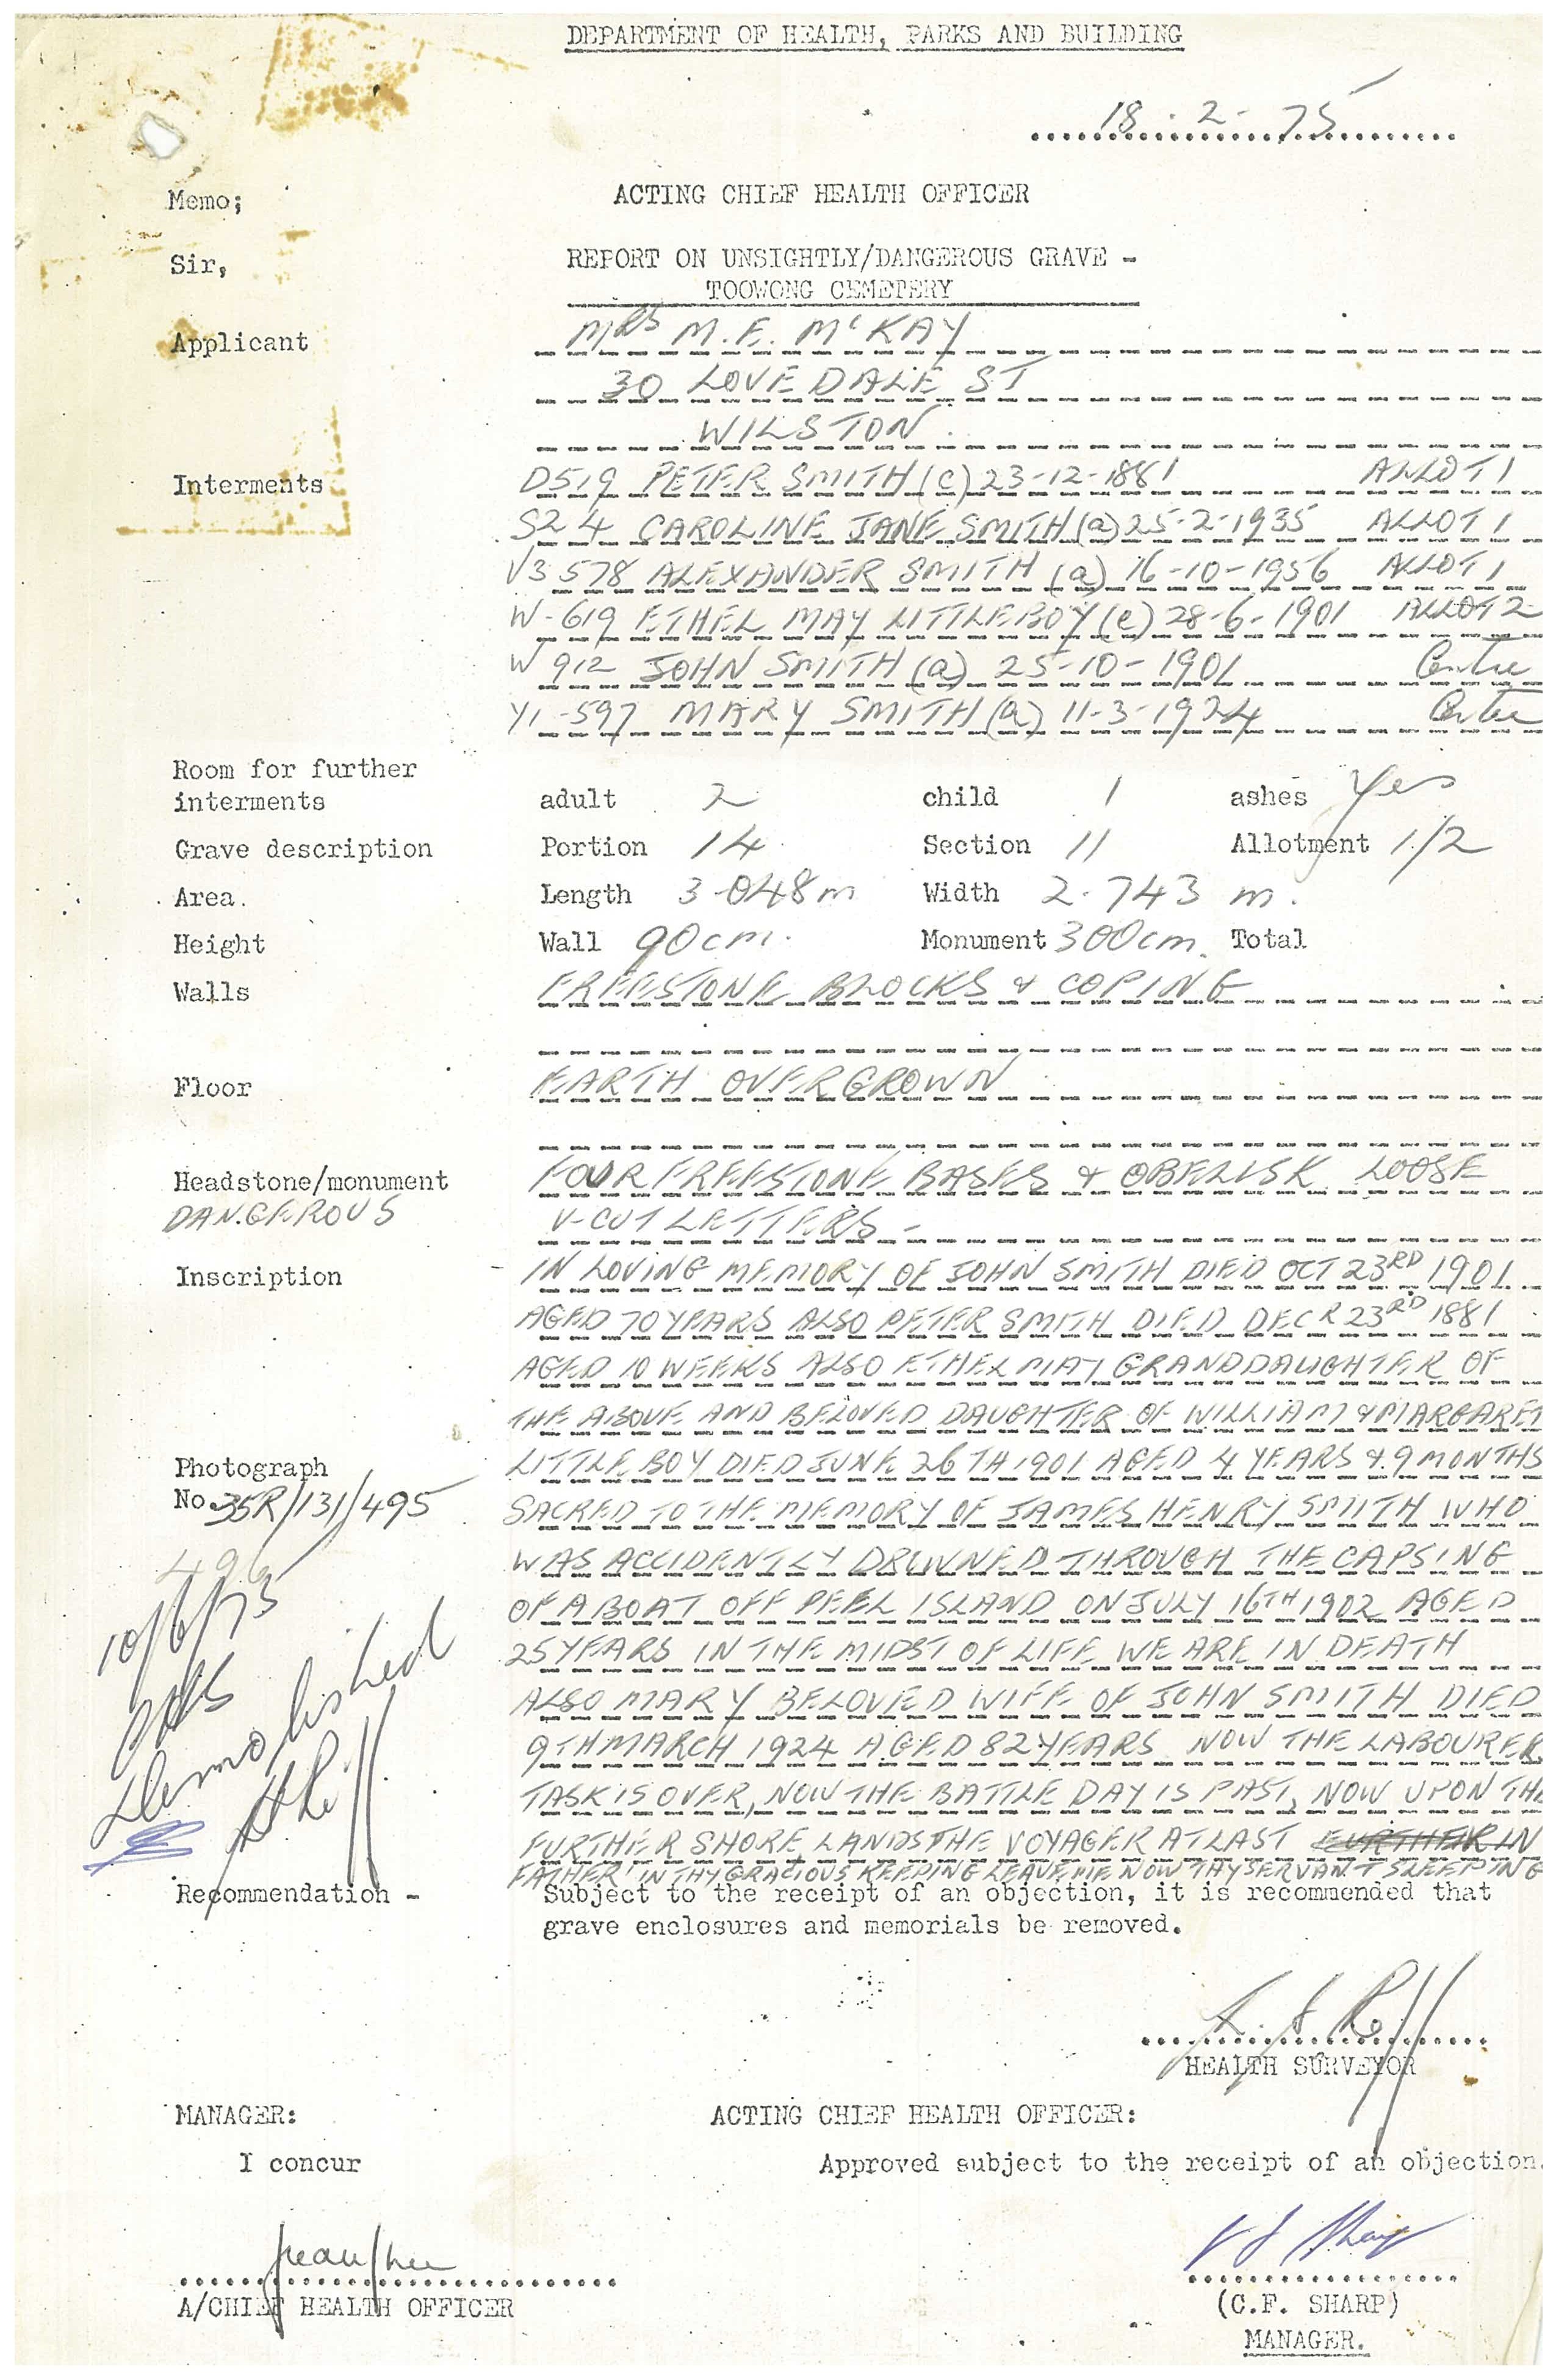 DEPARTMENT OF HEALTH, PARKS AND BUILDING
18 - 2 - 75
Memo; ACTING CHIEF HEALTH OFFICER
Sir, REPORT ON UNSIGHTLY/DANGEROUS GRAVE -
TOOWONG CEMETERY
Applicant MRS M.E. McKAY
30 LOVEDALE ST
WILSTON.
Interments D519 PETER SMITH (c) 23-12-1881 ALLOT 1
S24 CAROLINE JANE SMITH (a) 25-2-1935 ALLOT 1
V3578 ALEXANDER SMITH (a) 16-10-1956 ALLOT 1
W-619 ETHEL MAY LITTLEBOY (c) 28-6-1901 ALLOT 2
W 912 JOHN SMITH (a) 25-10-1901 Centre
Y1-597 MARY SMITH (a) 11-3-1924 Centre
Room for further
interments adult 2 child 1 ashes Yes
Grave description Portion 14 Section 11 Allotment 1/2
Area. Length 3.048m Width 2.743 m.
Height Wall 90cm. Monument 300cm. Total
Walls FREESTONE BLOCKS & COPING
Floor EARTH OVERGROWN
Headstone/monument FOUR FREESTONE BASES & OBELISK LOOSE
DANGEROUS V-CUT LETTERS -
Inscription - IN LOVING MEMORY OF JOHN SMITH DIED OCT 23RD 1901
AGED 70 YEARS ALSO PETER SMITH DIED DECR 23RD 1881
AGED 10 WEEKS ALSO ETHEL MAY GRANDDAUGHTER OF
THE ABOVE AND BELOVED DAUGHTER OF WILLIAM & MARGARET
Photograph LITTLEBOY DIED JUNE 26TH 1901 AGED 4 YEARS & 9 MONTHS
No. 35R/131/495 SACRED TO THE MEMORY OF JAMES HENRY SMITH WHO
496 WAS ACCIDENTLY DROWNED THROUGH THE CAPSING
10/6/75 OF A BOAT OFF PEEL ISLAND ON JULY 16TH 1902 AGED
25 YEARS IN THE MIDST OF LIFE WE ARE IN DEATH
demolished ALSO MARY BELOVED WIFE OF JOHN SMITH DIED
9TH MARCH 1924 AGED 82 YEARS NOW THE LABOURER
TASK IS OVER, NOW THE BATTLE DAY IS PAST, NOW UPON THE
FURTHER SHORE LANDS THE VOYAGER AT LAST FURTHER IN
FATHER IN THY GRACIOUS KEEPING LEAVE ME NOW THY SERVANT SLEEPING
Recommendation - Subject to the receipt of an objection, it is recommended that
grave enclosures and memorials be removed.
HEALTH SURVEYOR
MANAGER: ACTING CHIEF HEALTH OFFICER:
I concur Approved subject to the receipt of an objection.
A/CHIEF HEALTH OFFICER (C.F. SHARP)
MANAGER.